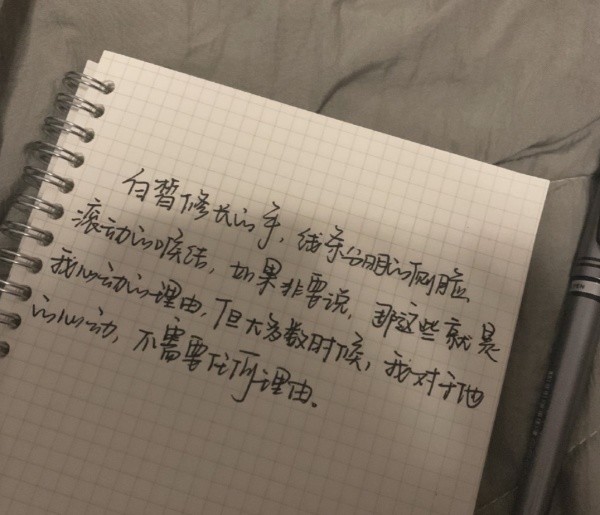 白皙修长的手,线条分明的侧脸、
滚动的喉结,如果非要说,那这些就是
我心动的理由,但大多数时候,我对于他
的心动,不需要任何理由.